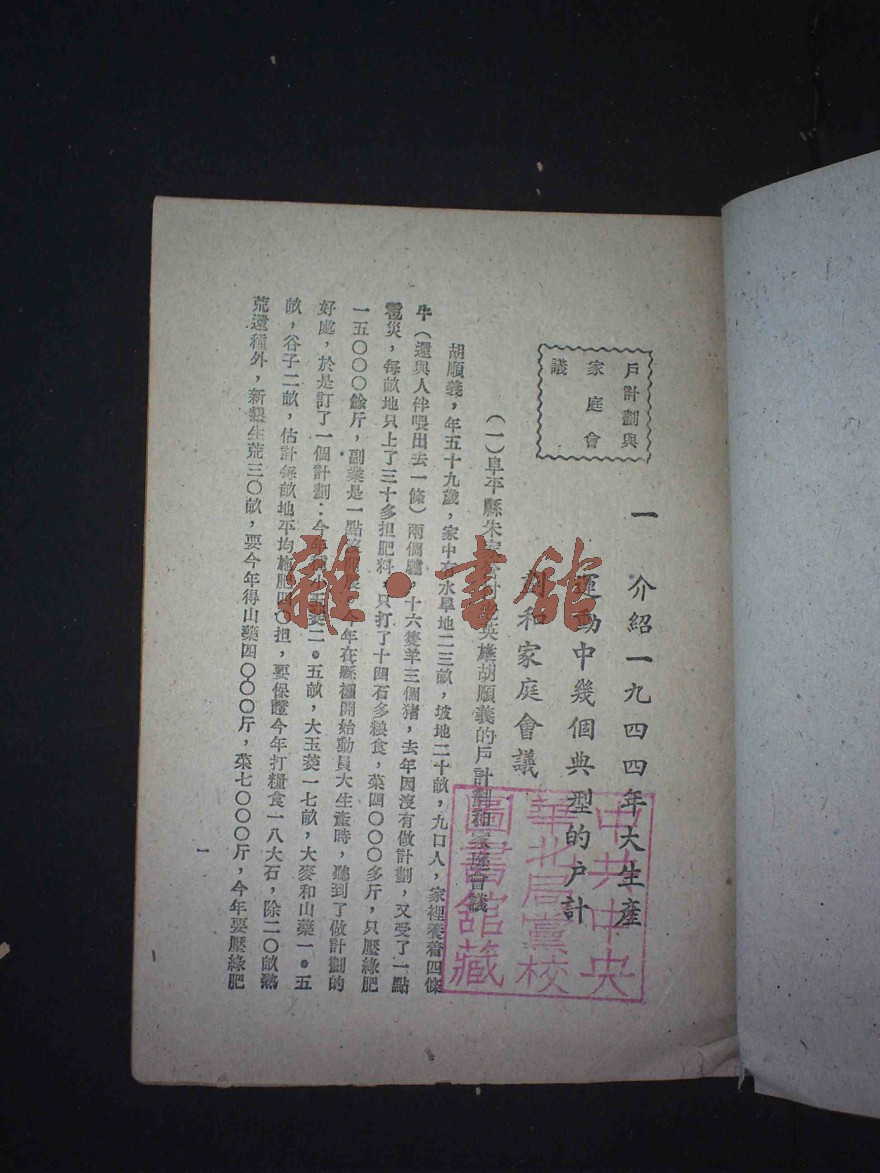 戶計劃與
家庭會
議
一 介紹一九四四年大生產
運動中幾個典型的户計
和家庭會議
(一)阜平縣朱家 英雄胡順義的戶計劃和家庭會議
胡順義,年五十九歲,家中有水旱地二三畝,坡地二十畝,九口人,家裡養着四條
牛(還與人伴喂出去一條)兩個驢,十六隻羊三個猪,去年因沒有做計劃,又受了一點
雹災,每畝地只上了三十多担肥料,只打了十四石多粮食,菜四〇〇〇多斤,只壓綠肥
一五〇〇〇餘斤,副業是一點 今年在縣裡開始動員大生產時,聽到了做計劃的
好處,於是訂了一個計劃:今年 小玉茭二。五畝,大玉茭一七畝,大麥和山藥一。五
畝,谷子二畝,估計每畝地平均施肥四〇担,要保證今年打糧食一八大石,除二〇畝熟
荒還種外,新墾生荒三〇畝,要今年得山藥四〇〇〇斤,菜七〇〇〇斤,今年要壓綠肥
一
中共中央
華北局黨校
圖書館藏
雜·書館